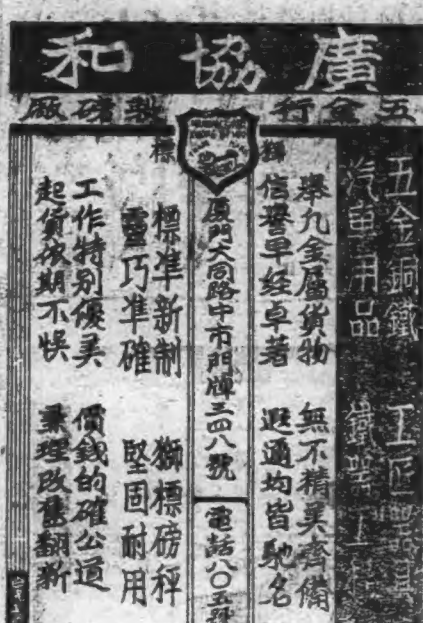 廣協和
五金行 製磅廠
獅標
五金銅鐵 工匠器具
汽車用品 鐵業工程
舉凡金屬貨物 無不精美齊備
信譽早經卓著 遐邇均皆馳名
厦門大同路中市門牌三四八號 電話八〇五號
標準新制 獅標磅秤
靈巧準確 堅固耐用
工作特別優美 價錢的確公道
起貨依期不悞 兼理改舊翻新